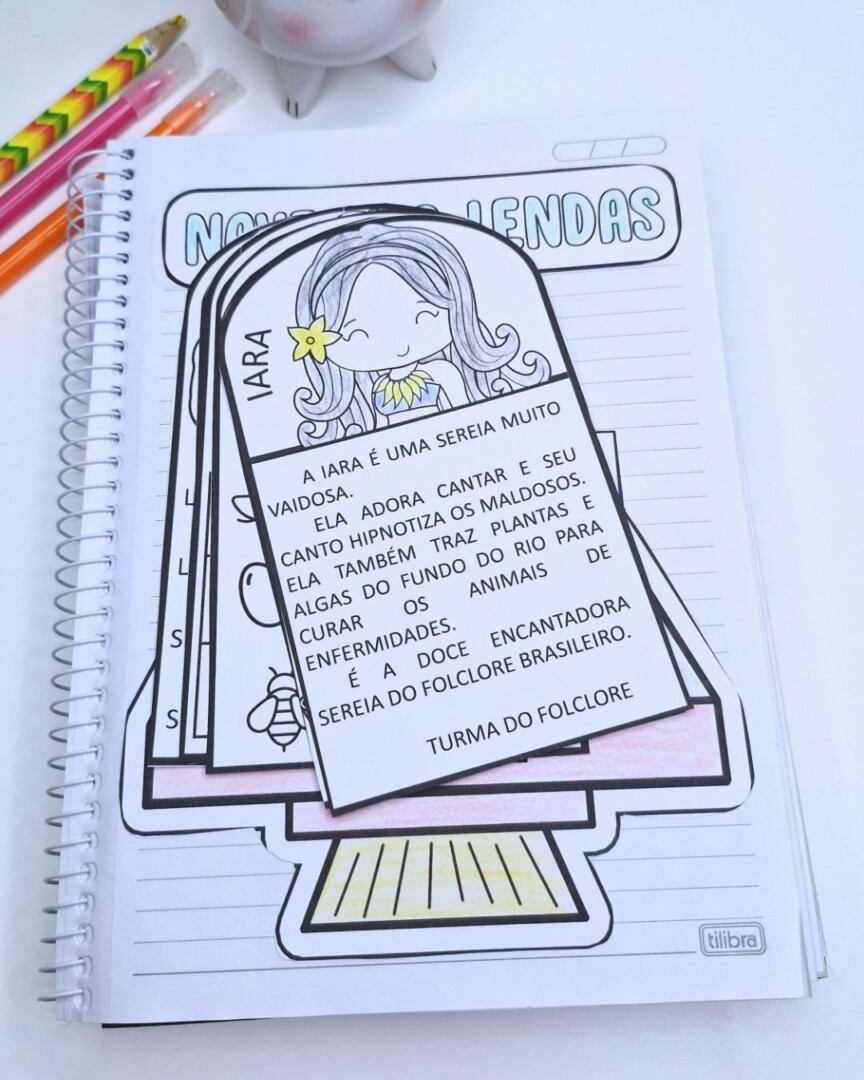 LENDAS
IARA
A IARA É UMA SEREIA MUITO
VAIDOSA.
ELA ADORA CANTAR E SEU
CANTO HIPNOTIZA OS MALDOSOS.
ELA TAMBÉM TRAZ PLANTAS E
ALGAS DO FUNDO DO RIO PARA
CURAR OS ANIMAIS DE
ENFERMIDADES.
É A DOCE ENCANTADORA
SEREIA DO FOLCLORE BRASILEIRO.
TURMA DO FOLCLORE
L
L
S
S
tilibra